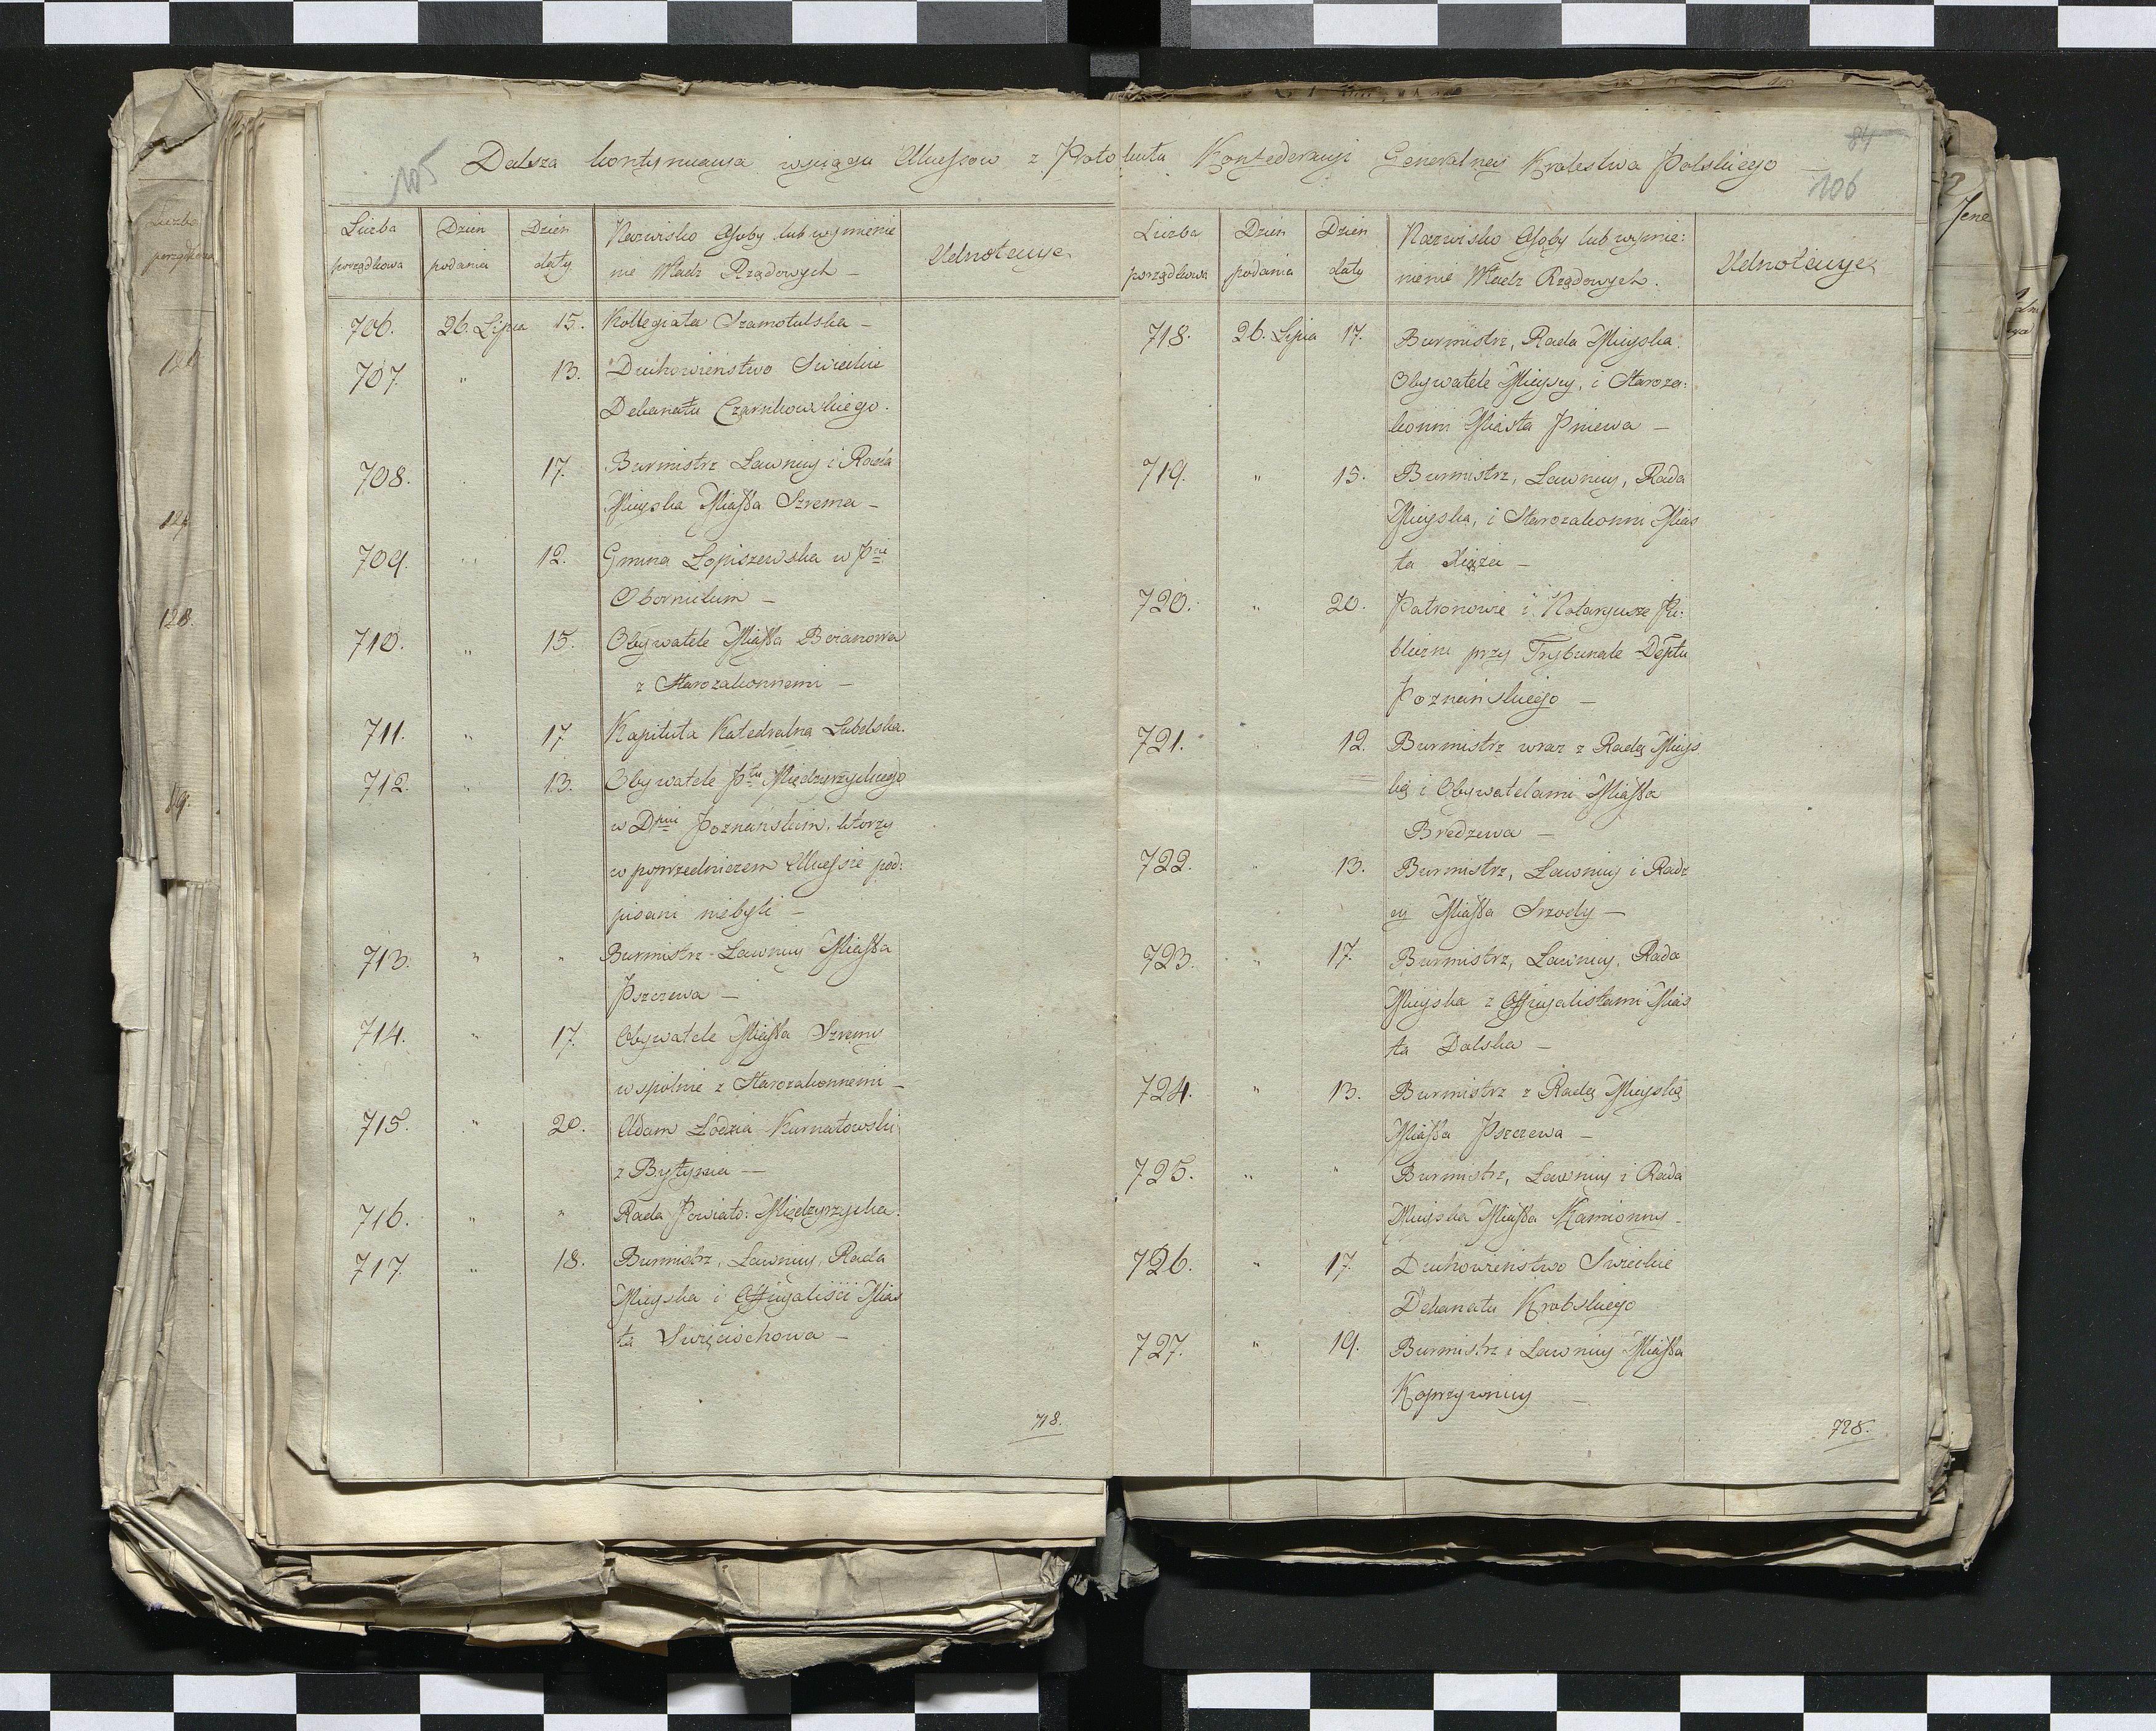 105
84
106
Dalsza kontynuacya wyciągu Akcessow z Protokułu Konfederacyi Generalney Krolestwa Polskiego
Liczba porządkowa
Dzień podania
Dzień daty
Nazwisko Osoby lub wymienie
nie Władz Rządowych —
Adnotacye
706. 26. Lipca 15. Kollegiata Szamotulska —
707. " 13. Duchowieństwo Swieckie
Dekanatu Czarnkowskiego.
708. " 17. Burmistrz Ławnicy i Rada
Mieyska Miasta Szrema —
709. " 12. Gmina Łopiszewska w Pcie
Obornickim —
710. " 15. Obywatele Miasta Boianowa
z Starozakonnemi —
711. " 17 Kapituła Katedralna Lubelska.
712. " 13. Obywatele Ptu Międzyrzyckiego
w Dpcie Poznanskim, ktorzy
w poprzedniczem Akcessie pod:
pisani niebyli —
713. " " Burmistrz Ławnicy Miasta
Pszczewa —
714. " 17. Obywatele Miasta Szremu
wspolnie z Starozakonnemi —
715. " 20. Adam Łodzia Kurnatowski
z Bytynia —
716. " " Rada Powiato: Międzyrzycka.
717. " 18. Burmistrz, Ławnicy, Rada
Mieyska i Officyaliści Mias
ta Swięciochowa —
718.
Liczba porządkowa
Dzień podania
Dzień daty
Nazwisko Osoby lub wymie:
nienie Władz Rządowych.
Adnotacye
718. 26. Lipca 17. Burmistrz, Rada Mieyska
Obywatele Mieyscy, i Staroza:
konni Miasta Pniewa —
719. " 15. Burmistrz, Ławnicy, Rada
Mieyska, i Starozakonni Mias
ta Xiąża —
720. " 20. Patronowie i Notaryusze Pu:
bliczni przy Trybunale Deptu
Poznańskiego —
721. " 12. Burmistrz wraz z Radą Mieys
ką i Obywatelami Miasta
Bredzewa —
722. " 13. Burmistrz, Ławnicy i Radz
cy Miasta Srzody —
723. " 17. Burmistrz, Ławnicy, Rada
Mieyska z Officyalistami Mias
ta Dolska —
724. " 13. Burmistrz z Radą Mieyską
Miasta Pszczewa —
725. " " Burmistrz, Ławnicy i Rada
Mieyska Miasta Kamionny —
726. " 17. Duchowieństwo Swieckie
Dekanatu Krobskiego
727. " 19. Burmistrz i Ławnicy Miasta
Koprzywnicy —
728.